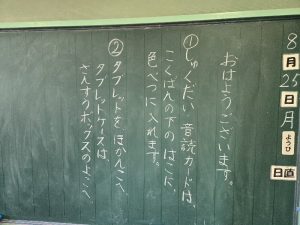 8
月
25
日
月
ようび
日直
おはようございます。
①しゅくだい 音読カードは、
こくばんの下のはこに、
色べつに入れます。
②タブレットをほかんこへ
タブレットケースは、
さんすうボックスのよこへ